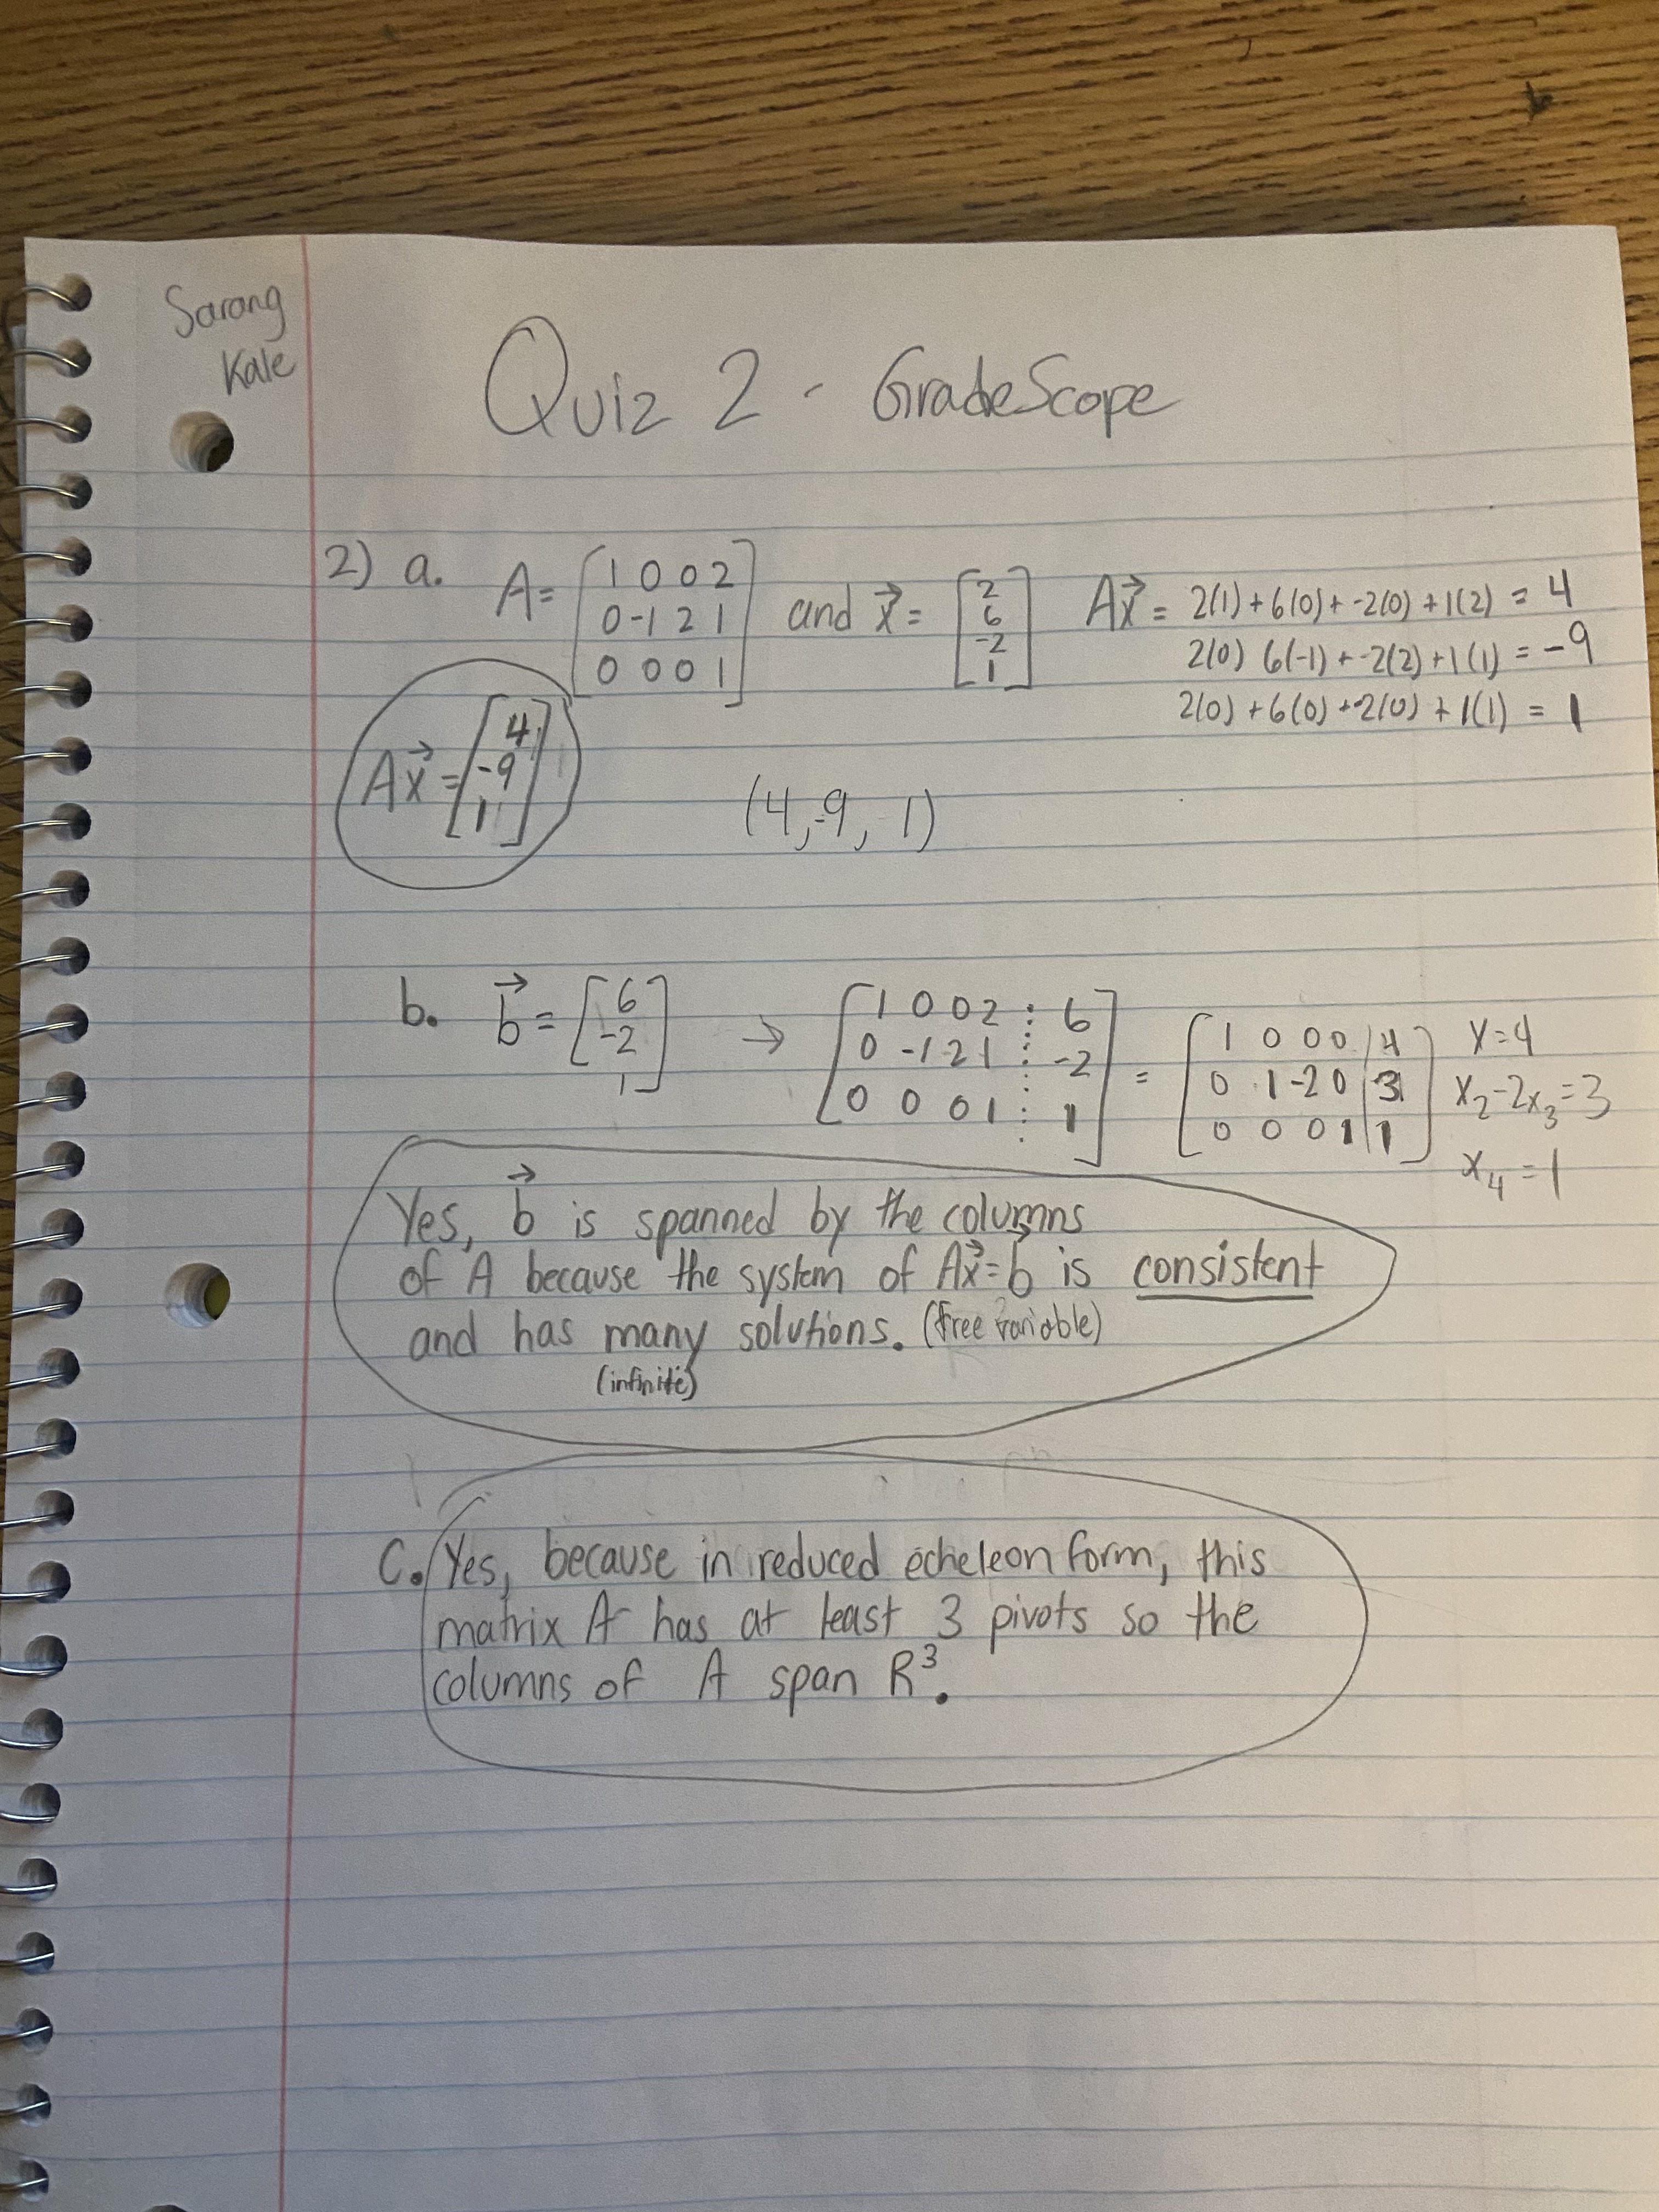 Sarang
Kale
Quiz 2 - GradeScope
2) a. A = [1 0 0 2
0 -1 2 1
0 0 0 1] and x⃗ = [2
6
-2
1] Ax⃗ = 2(1) + 6(0) + -2(0) + 1(2) = 4
2(0) 6(-1) + -2(2) + 1(1) = -9
2(0) + 6(0) + -2(0) + 1(1) = 1
Ax⃗ = [4
-9
1]
(4, -9, 1)
b. b⃗ = [6
-2
1] → [1 0 0 2 ⋮ 6
0 -1 2 1 ⋮ -2
0 0 0 1 ⋮ 1] = [1 0 0 0 | 4
0 1 -2 0 | 3
0 0 0 1 | 1] x = 4
x₂ - 2x₃ = 3
x₄ = 1
Yes, b⃗ is spanned by the columns
of A because the system of Ax⃗ = b⃗ is consistent
and has many solutions. (free variable)
(infinite)
C. Yes, because in reduced echeleon form, this
matrix A has at least 3 pivots so the
columns of A span R³.